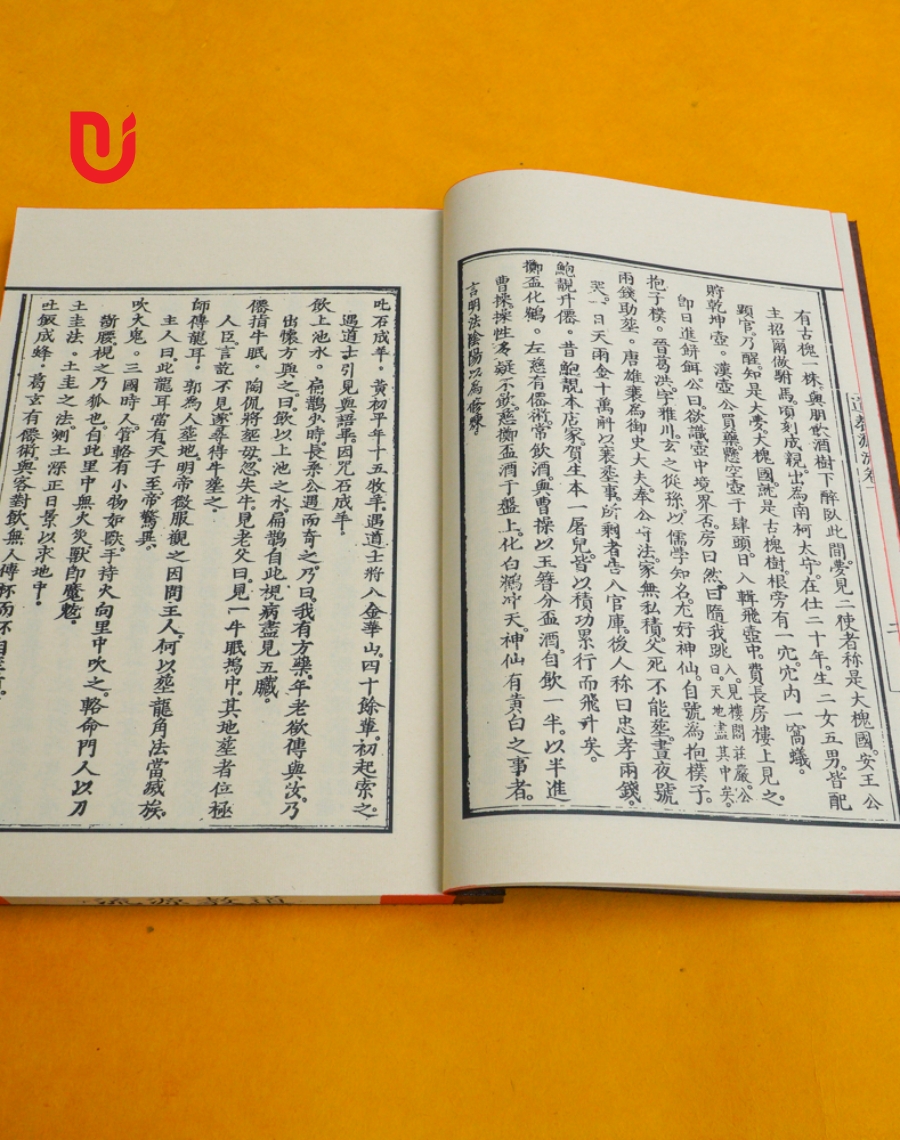 道教源流卷一
有古槐一株。與朋飲酒樹下醉臥此間。夢見二使者称是大槐國。安王公
主招爾做駙馬。頃刻成親。出為南柯太守。在仕二十年。生二女五男。皆配
顯官。乃醒。知是大夢。大槐國就是古槐樹。根旁有一穴。穴内一窩蟻。
貯乾坤壺。漢壺公買藥懸空壺于肆頭。日入輯飛壺中。費長房樓上見之。
即日進餅餌。公曰。欲識壺中境界否。房曰然。曰隨我跳入。見樓閣莊嚴。公曰。天地盡其中矣。
抱子樸。晉葛洪。字雅川。玄之從孫。以儒學知名。尤好神仙。自號為抱樸子。
兩錢助塟。唐雄裴為御史大夫。奉公守法。家無私積。父死不能塟。晝夜號
哭。一日天雨金十萬斛以裴塟事。所剩者告入官庫。後人称曰忠孝兩錢。
鮑靚升僊。昔鮑靚本店家。賀生本一屠兒。皆以積功累行而飛升矣。
擲盃化鶴。左慈有僊術。常飲酒。與曹操以玉簪分盃酒。自飲一半。以半進
曹操。操性多疑不飲。慈擲盃酒于盤上。化白鶴冲天。神仙有黄白之事者。
言明法陰陽以為修煉。
吐石成羊。黄初平年十五牧羊。遇道士將入金華山。四十餘載。初起索之。
遇道士引見與語畢。因咒石成羊。
飲上池水。扁鵲少時。長桑公遇而奇之。乃曰。我有方藥。年老欲傳與汝。乃
出懷方與之。曰。飲以上池之水。扁鵲自此視病盡見五臟。
僊指牛眠。陶侃將塟母。忽失牛。見老父曰。見一牛眠塢中。其地塟者位極
人臣。言訖不見。遂尋得牛塟之。
師傳龍耳。郭為人塟地。明帝微服觀之。因問王人。何以塟龍角法當滅族。
主人曰。此龍耳當有天子至。帝驚異。
吹大鬼。三國時人。管輅有小物如獸。手持火向里中吹之。輅命門人以刀
斷腰視之乃狐也。自此里中無火災。獸即魔魃。
土圭法。土圭之法。測土深正日景以求地中。
吐飯成蜂。葛玄有僊術。與客對飲。無人傳杯而不
道教源流